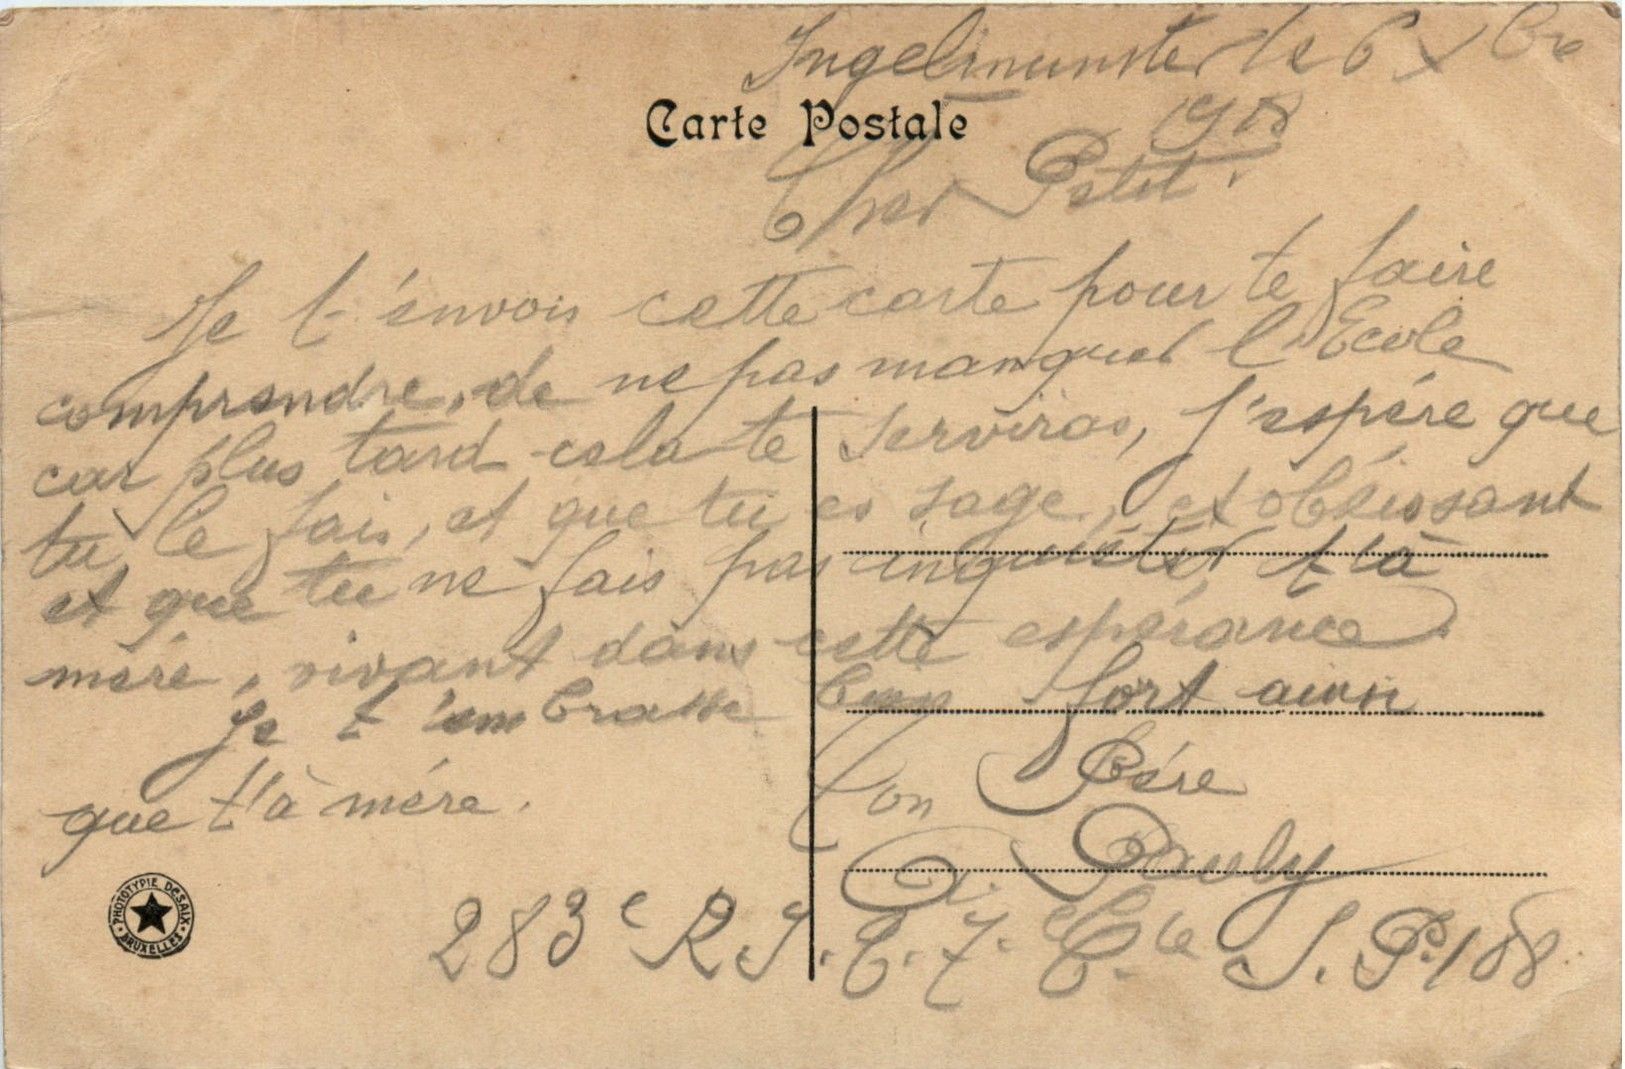 Ingelmunster le 6 X bre
1918
Carte Postale
Cher Petit.
Je t'envois cette carte pour te faire
comprendre, de ne pas manquer l'Ecole
car plus tard cela te serviras, j'espére que
tu le fais, et que tu es sage, et obéissant
et que tu ne fais pas inquiéter t'à
mére, vivant dans cette espérance
Je t'embrasse bien fort ainsi
que t'à mére.
Ton Pére
A. Pauly
283e R.I.T. 7e Cie S.P. 188
PHOTOTYPIE DESAIX
BRUXELLES